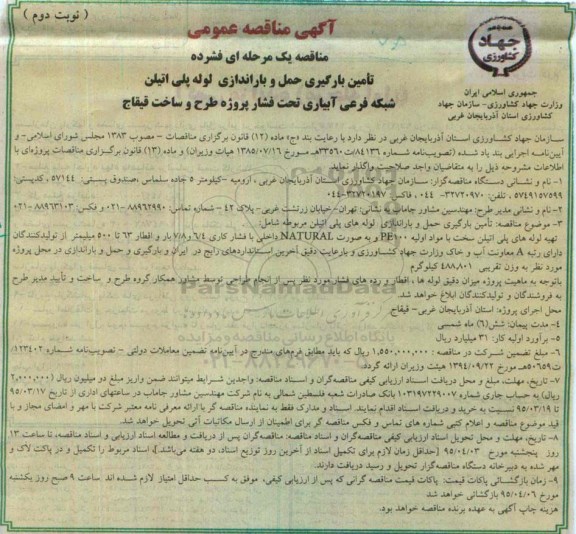 ( نوبت دوم )
آگهی مناقصه عمومی
جهاد
کشاورزی
مناقصه یک مرحله ای فشرده
تأمین بارگیری حمل و باراندازی لوله پلی اتیلن
شبکه فرعی آبیاری تحت فشار پروژه طرح و ساخت قیقاج
جمهوری اسلامی ایران
وزارت جهاد کشاورزی- سازمان جهاد
کشاورزی استان آذربایجان غربی
سازمان جهاد کشاورزی استان آذربایجان غربی در نظر دارد با رعایت بند (ج) ماده (۱۲) قانون برگزاری مناقصات - مصوب ۱۳۸۳ مجلس شورای اسلامی- و
آیین‌نامه اجرایی بند یاد شده (تصویب‌نامه شماره ۸۴۱۳۶/ت۳۳۵۶۰هـ مورخ ۱۳۸۵/۰۷/۱۶ هیات وزیران) و ماده (۱۳) قانون برگزاری مناقصات پروژه‌ای با
اطلاعات مشروحه ذیل را به متقاضیان واجد صلاحیت واگذار نماید.
۱- نام و نشانی دستگاه مناقصه‌گزار: سازمان جهاد کشاورزی استان آذربایجان غربی، ارومیه -کیلومتر ۵ جاده سلماس ،صندوق پستی: ۵۷۱۴۴ ، کدپستی:
۵۷۴۹۱۵۷۵۹۹ ، تلفن: ۳۲۷۲۰۹۷۰-۰۴۴ ، فاکس: ۳۲۷۲۰۱۹۷-۰۴۴
۲- نام و نشانی مدیر طرح: مهندسین مشاور جاماب به نشانی: تهران-خیابان زرتشت غربی- پلاک ۴۲ - شماره تماس: ۸۸۹۶۲۹۹۰-۰۲۱ و فکس: ۸۸۹۶۳۱۰۳-۰۲۱
۳- موضوع مناقصه: تأمین بارگیری حمل و باراندازی لوله های پلی اتیلن مربوطه شامل:
تهیه لوله های پلی اتیلن سخت با مواد اولیه PE۱۰۰ و به صورت NATURAL داخلی با فشار کاری ۶/۴ و ۷/۸ بار و اقطار ۶۳ تا ۵۰۰ میلیمتر از تولیدکنندگان
دارای رتبه A معاونت آب و خاک وزارت جهاد کشاورزی و بارعایت دقیق آخرین استانداردهای رایج در ایران و بارگیری و حمل و باراندازی در محل پروژه
مورد نظر به وزن تقریبی ۴۸۸۸۰۱ کیلوگرم
باتوجه به ماهیت پروژه میزان دقیق لوله ها ، اقطار و رده های فشار مورد نظر پس از انجام طراحی توسط مشاور همکار گروه طرح و ساخت و تأیید مدیر طرح
به فروشندگان و تولیدکنندگان ابلاغ خواهد شد.
محل اجرای پروژه: استان آذربایجان غربی- قیقاج
۴- مدت پیمان: شش(۶) ماه شمسی
۵- برآورد اولیه کار: ۳۱ میلیارد ریال
۶- مبلغ تضمین شرکت در مناقصه : ۱,۵۵۰,۰۰۰,۰۰۰ ریال که باید مطابق فرم‌های مندرج در آیین‌نامه تضمین معاملات دولتی - تصویب‌نامه شماره ۱۲۳۴۰۲/
ت۵۰۶۵۹هـ مورخ ۱۳۹۴/۰۹/۲۲ هیئت وزیران ارائه گردد.
۷- تاریخ، مهلت، مبلغ و محل دریافت اسناد ارزیابی کیفی مناقصه‌گران و اسناد مناقصه: واجدین شرایط میتوانند ضمن واریز مبلغ دو میلیون ریال (۲,۰۰۰,۰۰۰
ریال) به حساب جاری شماره ۱۰۳۱۹۷۲۲۹۰۰۷ بانک صادرات شعبه فلسطین شمالی به نام شرکت مهندسین مشاور جاماب در ساعتهای اداری از تاریخ ۹۵/۰۳/۱۷
تا ۹۵/۰۳/۱۹ نسبت به خرید و دریافت اسناد اقدام نمایند. اسناد و مدارک فقط به نماینده مناقصه گر با ارائه معرفی نامه معتبر شرکت با مهر و امضای مجاز و با
قید موضوع مناقصه و اعلام کتبی شماره های تماس و فکس مناقصه گر برای اطمینان از ارسال مکاتبات آتی تحویل خواهد شد.
۸- تاریخ، مهلت و محل تحویل اسناد ارزیابی کیفی مناقصه‌گران و اسناد مناقصه: مناقصه‌گران پس از دریافت و مطالعه اسناد ارزیابی و اسناد مناقصه، تا ساعت ۱۳
روز پنجشنبه مورخ ۹۵/۰۴/۰۳ (حداقل زمان لازم برای تکمیل اسناد از آخرین روز توزیع اسناد، دو هفته می‌باشد.)، اسناد مربوط را تکمیل و در پاکت لاک و
مهر شده به دبیرخانه دستگاه مناقصه‌گزار تحویل و رسید دریافت دارند.
۹- زمان بازگشائی پاکات قیمت: پاکات قیمت مناقصه گرانی که پس از ارزیابی کیفی، موفق به کسب حداقل امتیاز لازم شده اند ساعت ۹ صبح روز یکشنبه
مورخ ۹۵/۰۴/۰۶ بازگشائی خواهد شد
هزینه چاپ آگهی به عهده برنده مناقصه خواهد بود.
ParsNamadData
پایگاه اطلاع رسانی مناقصه و مزایده